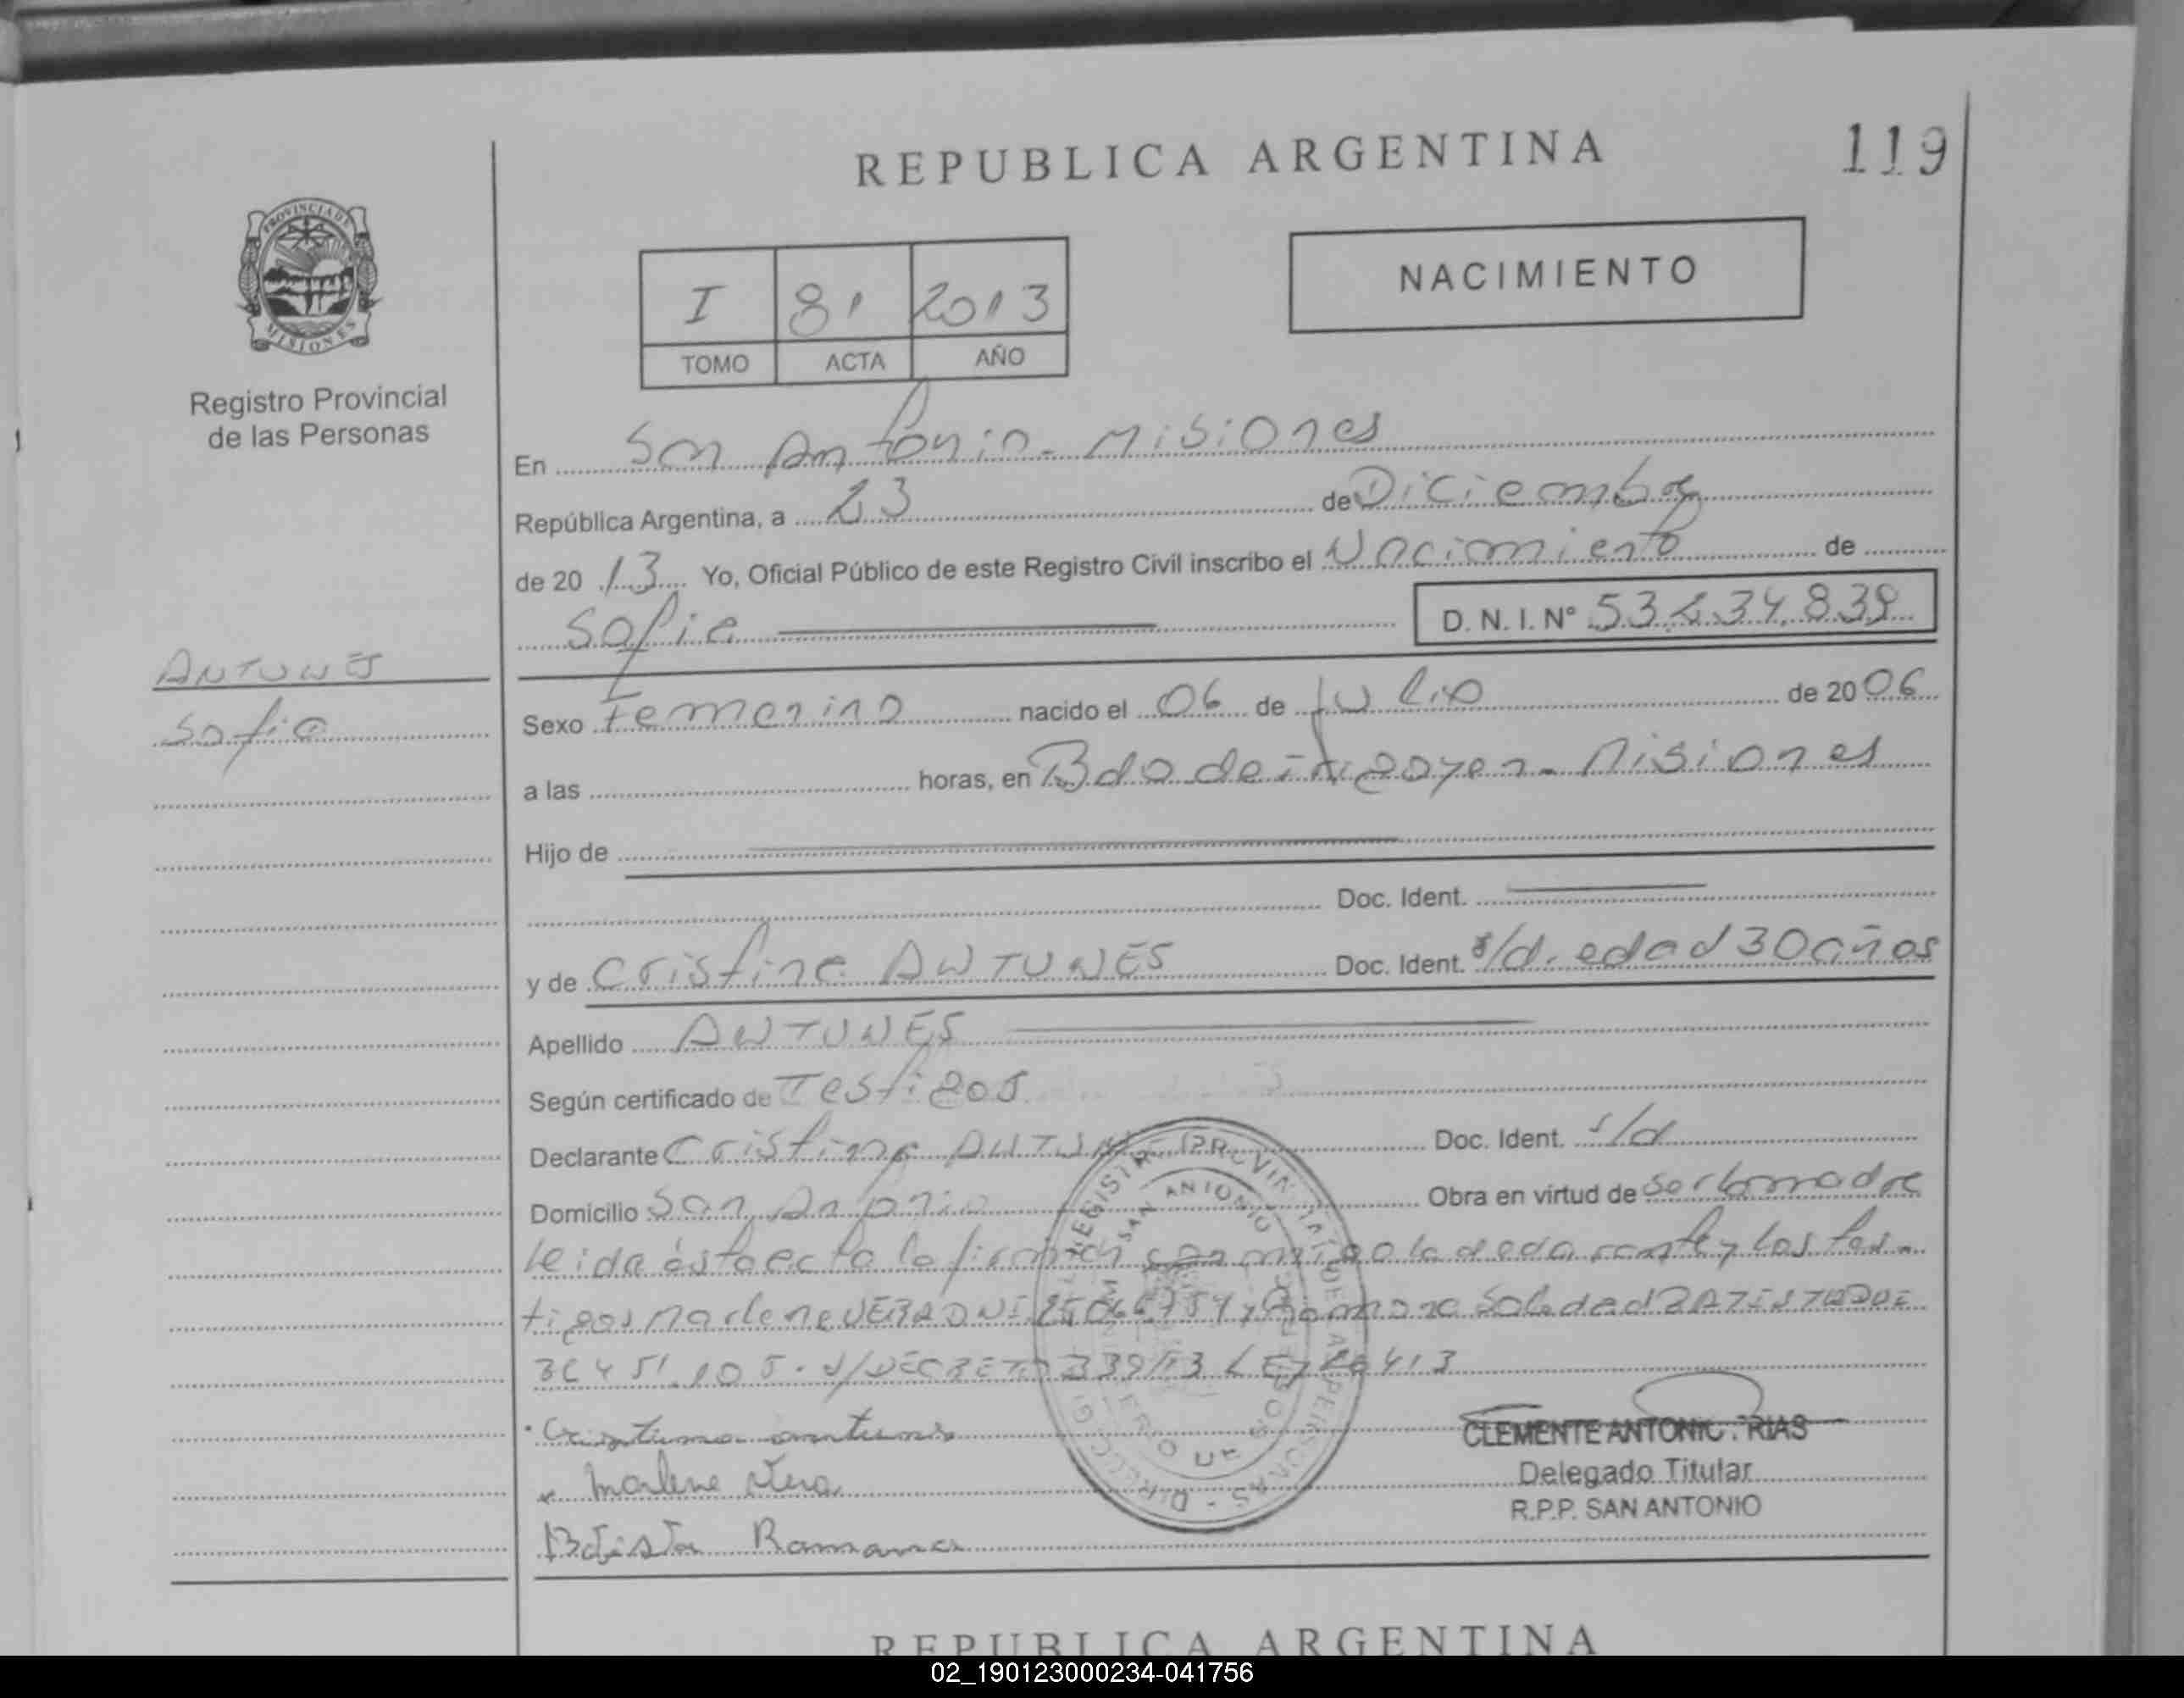 REPUBLICA ARGENTINA
119
PROVINCIA DE
MISIONES
Registro Provincial
de las Personas
I 81 2013
TOMO ACTA AÑO
NACIMIENTO
En San Antonio - Misiones
República Argentina, a 23 de Diciembre
de 2013 Yo, Oficial Público de este Registro Civil inscribo el Nacimiento de
Sofia D. N. I. N°
ANTUNES
Sofia
Sexo Femenino nacido el 06 de Julio de 2006
a las horas, en Bdo de Irigoyen - Misiones
Hijo de
Doc. Ident.
y de Cristina ANTUNES Doc. Ident. s/d. edad 30 años
Apellido ANTUNES
Según certificado de Testigos
Declarante Cristina ANTUNES Doc. Ident. s/d
Domicilio San Antonio Obra en virtud de ser la madre
leida ésta acta la firman conmigo la declarante y los tes-
tigos Marlene VERA DNI y Romana Soledad BATISTA DNI
S/DECRETO 339/13 LEY 26413
Cristina antunis
Marlene Vera
Batista Romana
SAN ANTONIO
CLEMENTE ANTONIO
Delegado Titular
R.P.P. SAN ANTONIO
REPUBLICA ARGENTINA
02_190123000234-041756